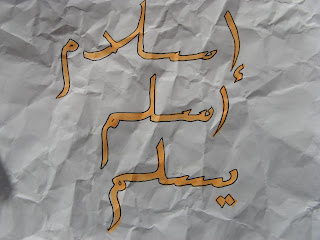 إسلام
أسلم
يسلم